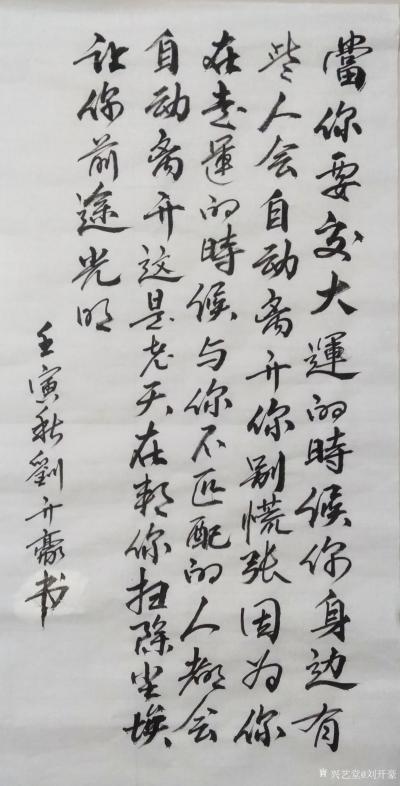 當你要交大運的時候你身边有
些人会自动离开你别慌张因为你
在走運的時候与你不匹配的人都会
自动离开这是老天在帮你扫除尘埃
让你前途光明
壬寅秋劉开豪书
兴艺堂@刘开豪